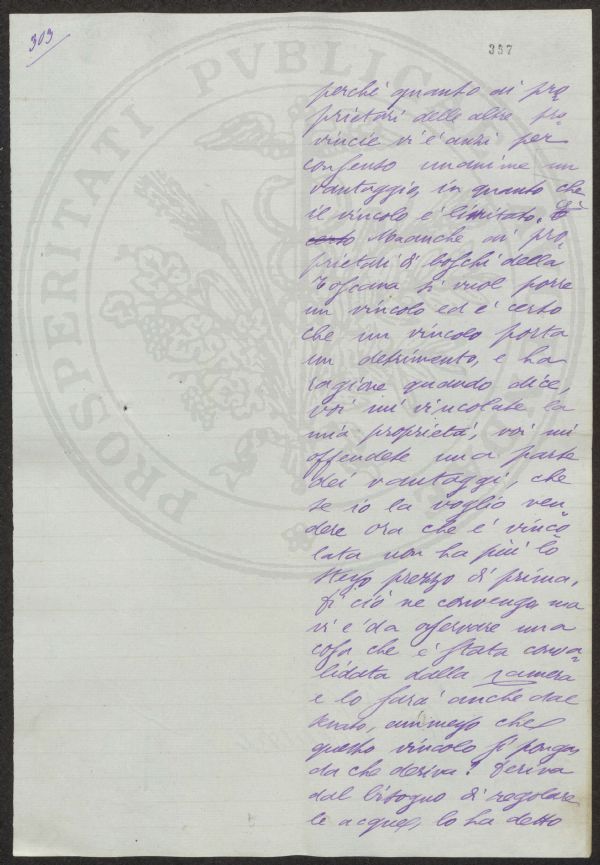 303
337
PROSPERITATI PVBLICAE
perché quanto ai pro
prietari delle altre pro
vincie vi è anzi per
consenso unanime un
vantaggio, in quanto che
il vincolo è limitato. È
certo Ma anche ai pro
prietari di boschi della
Toscana si vuol porre
un vincolo ed è certo
che un vincolo porta
un detrimento, e ha
ragione quando dice,
voi mi vincolate la
mia proprietà, voi mi
offendete una parte
dei vantaggi, che
se io la voglio ven
dere ora che è vinco
lata non ha più lo
stesso prezzo di prima.
Di ciò ne convengo ma
vi è da osservare una
cosa che è stata conva
lidata dalla Camera
e lo sarà anche dal
Senato, ammesso che
questo vincolo si ponga,
da che deriva? Deriva
dal bisogno di regolare
le acque, lo ha detto